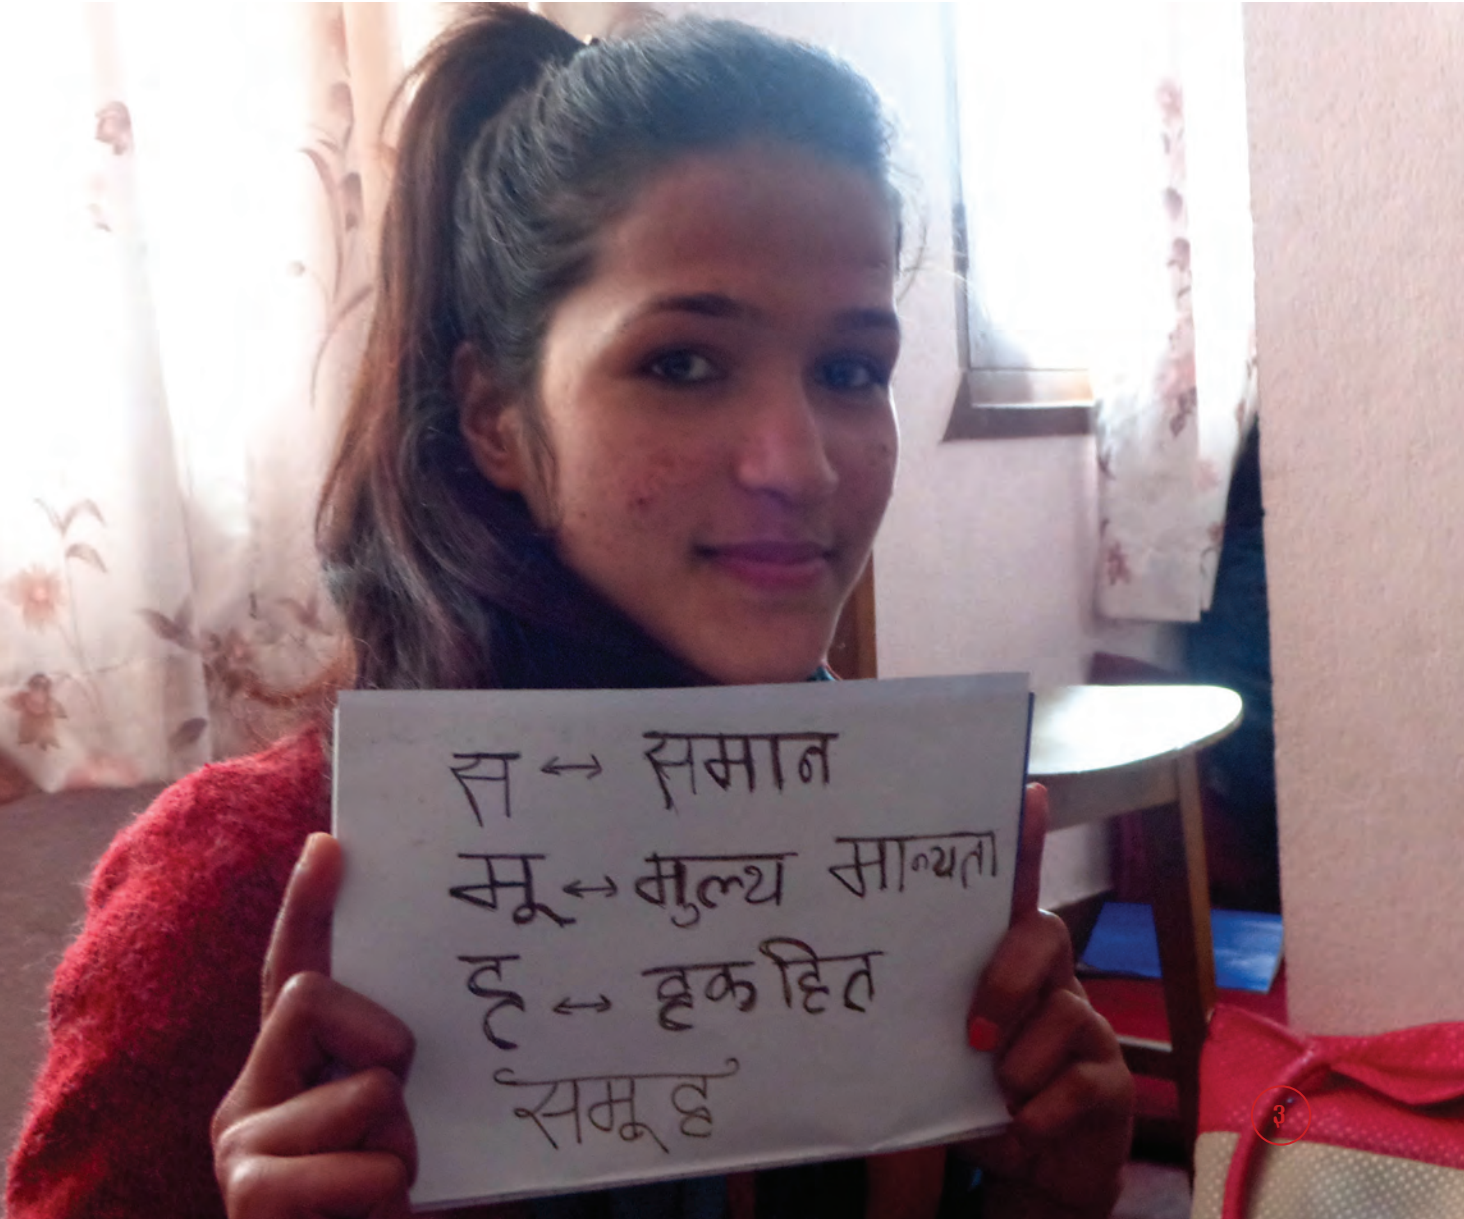 स ↔ समान
मू ↔ मुल्य मान्यता
ह ↔ हक हित
समूह
३